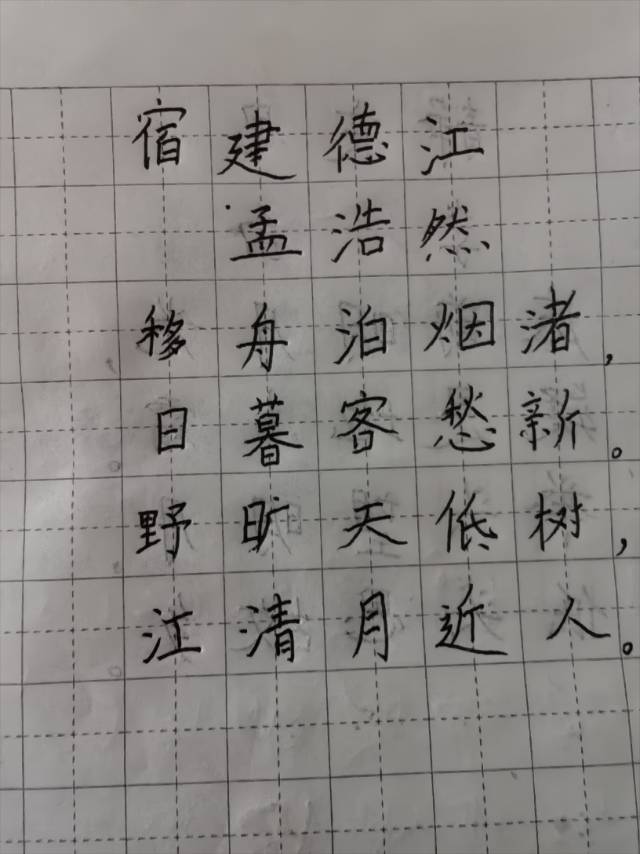 宿建德江
孟浩然
移舟泊烟渚，
日暮客愁新。
野旷天低树，
江清月近人。